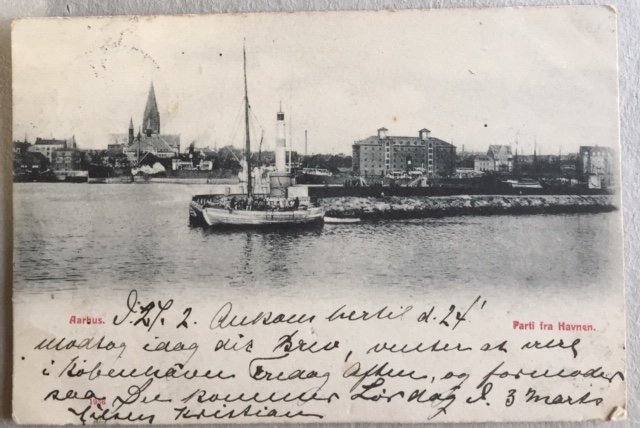 Aarbus.
Parti fra Havnen.
D. 27. 2. Ankom hertil d. 24'
modtog idag dit Brev, venter at være
i København Fredag Aften, og formoder
saa Du kommer Lørdag d. 3 marts
Hilsen Kristian